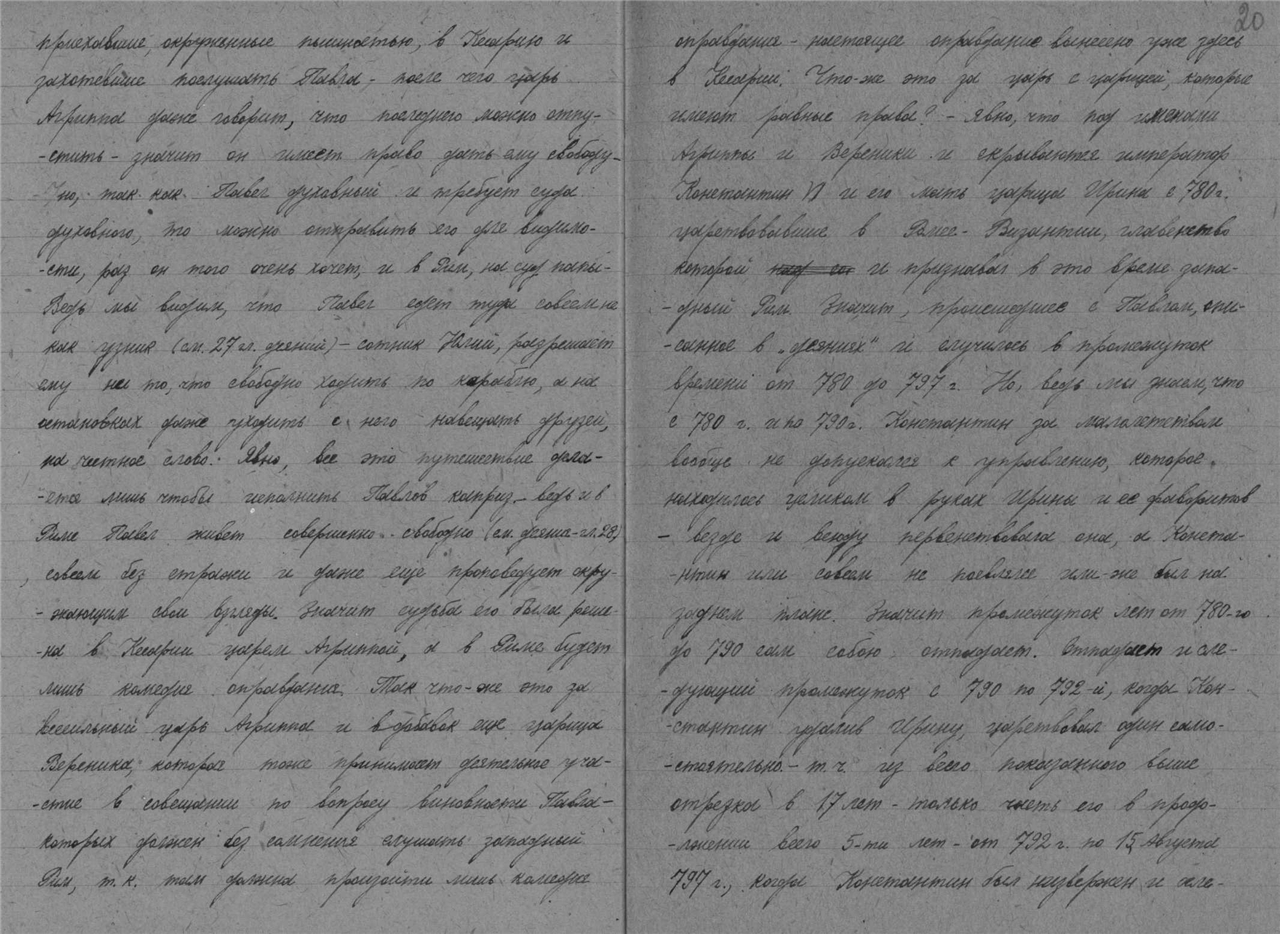 приехавшие, окруженные пышностью, в Кесарию и
захотевшие послушать Павла - после чего царь
Агриппа даже говорит, что последнего можно отпу-
-стить - значит он имеет право дать ему свободу -
- но, так как Павел духовный и требует суда
духовного, то можно отправить его для видимо-
-сти, раз он того очень хочет, и в Рим, на суд папы -
Ведь мы видим, что Павел едет туда совсем не
как узник (см. 27 гл. деяний) - сотник Юлий, разрешает
ему не то, что свободно ходить по кораблю, а на
остановках даже уходить с него навещать друзей,
на честное слово. Явно, все это путешествие дела-
-ется лишь чтобы исполнить Павлов каприз - ведь и в
Риме Павел живет совершенно свободно (см. деяния - гл. 28)
, совсем без стражи и даже еще проповедует окру-
-жающим свои взгляды. Значит судьба его была реше-
-на в Кесарии царем Агриппой, а в Риме будет
лишь комедия оправдания. Так что-же это за
всесильный царь Агриппа и вдобавок еще царица
Вереника, которая тоже принимает деятельно уча-
-стие в совещании по вопросу виновности Павла -
которых должен без сомнения слушать западный
Рим, т.к. там должна произойти лишь комедия
20
оправдания - настоящее оправдание вынесено уже здесь
в Кесарии. Что-же это за царь с царицей, которые
имеют равные права? - Явно, что под именами
Агриппы и Вереники и скрываются император
Константин VI и его мать царица Ирина с 780 г.
царствовавшие в Ромее - Византии, главенство
которой над ее и признавал в это время запа-
-дный Рим. Значит, происшедшее с Павлом, опи-
-санное в „деяниях" и случилось в промежуток
времени от 780 до 797 г. Но, ведь мы знаем, что
с 780 г. и по 790 г. Константин за малолетством
вообще не допускался к управлению, которое
находилось целиком в руках Ирины и ее фаворитов
- везде и всюду первенствовала она, а Конста-
-нтин или совсем не появлялся или-же был на
заднем плане. Значит промежуток лет от 780-го
до 790 сам собою отпадает. Отпадает и сле-
-дующий промежуток с 790 по 792-й, когда Кон-
-стантин удалив Ирину, царствовал один само-
-стоятельно - т.ч. из всего показанного выше
отрезка в 17 лет - только часть его в продо-
-лжении всего 5-ти лет - от 792 г. по 15 Августа
797 г., когда Константин был низвержен и осле-